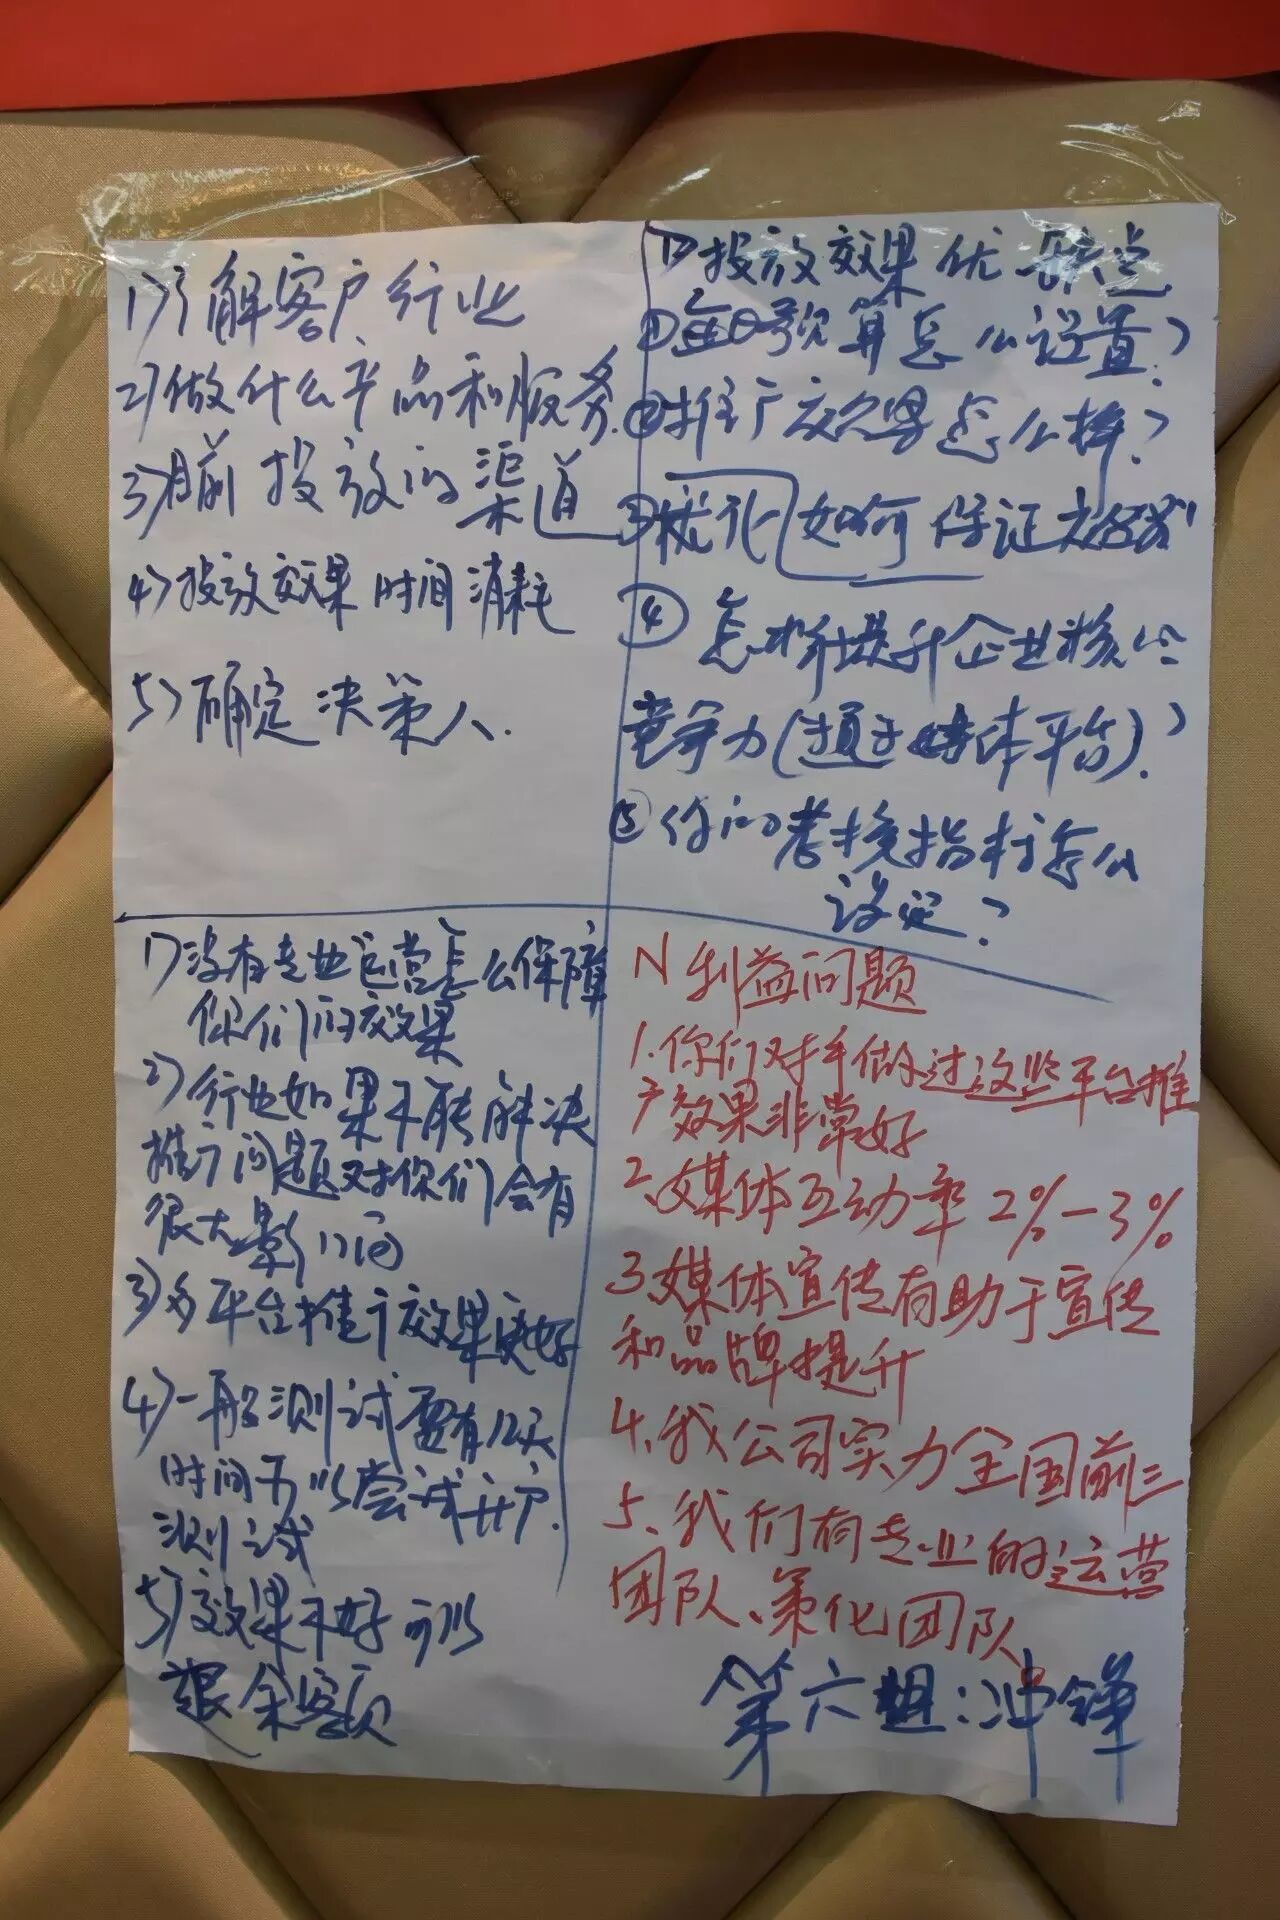 1)了解客户行业
2)做什么产品和服务.
3)目前投放的渠道
4)投放效果时间消耗
5)确定决策人.
投放效果优缺点
①每日预算怎么设置?
②推广效果怎么样?
③优化如何保证
④怎样提升企业核心
竞争力(通过媒体平台)?
⑤你们考核指标怎么
设定?
1)没有专业运营怎么保障
你们的效果
2)行业如果不能解决
推广问题对你们会有
很大影响
3)多平台推广效果更好
4)一般测试需有12天
时间可以尝试开户.
测试
5)效果不好可以
退余额
N利益问题
1.你们对手做过这些平台推
广效果非常好
2、媒体互动率2%-3%
3.媒体宣传有助于宣传
和品牌提升
4.我公司实力全国前三
5、我们有专业的运营
团队、策化团队
第六组:冲锋